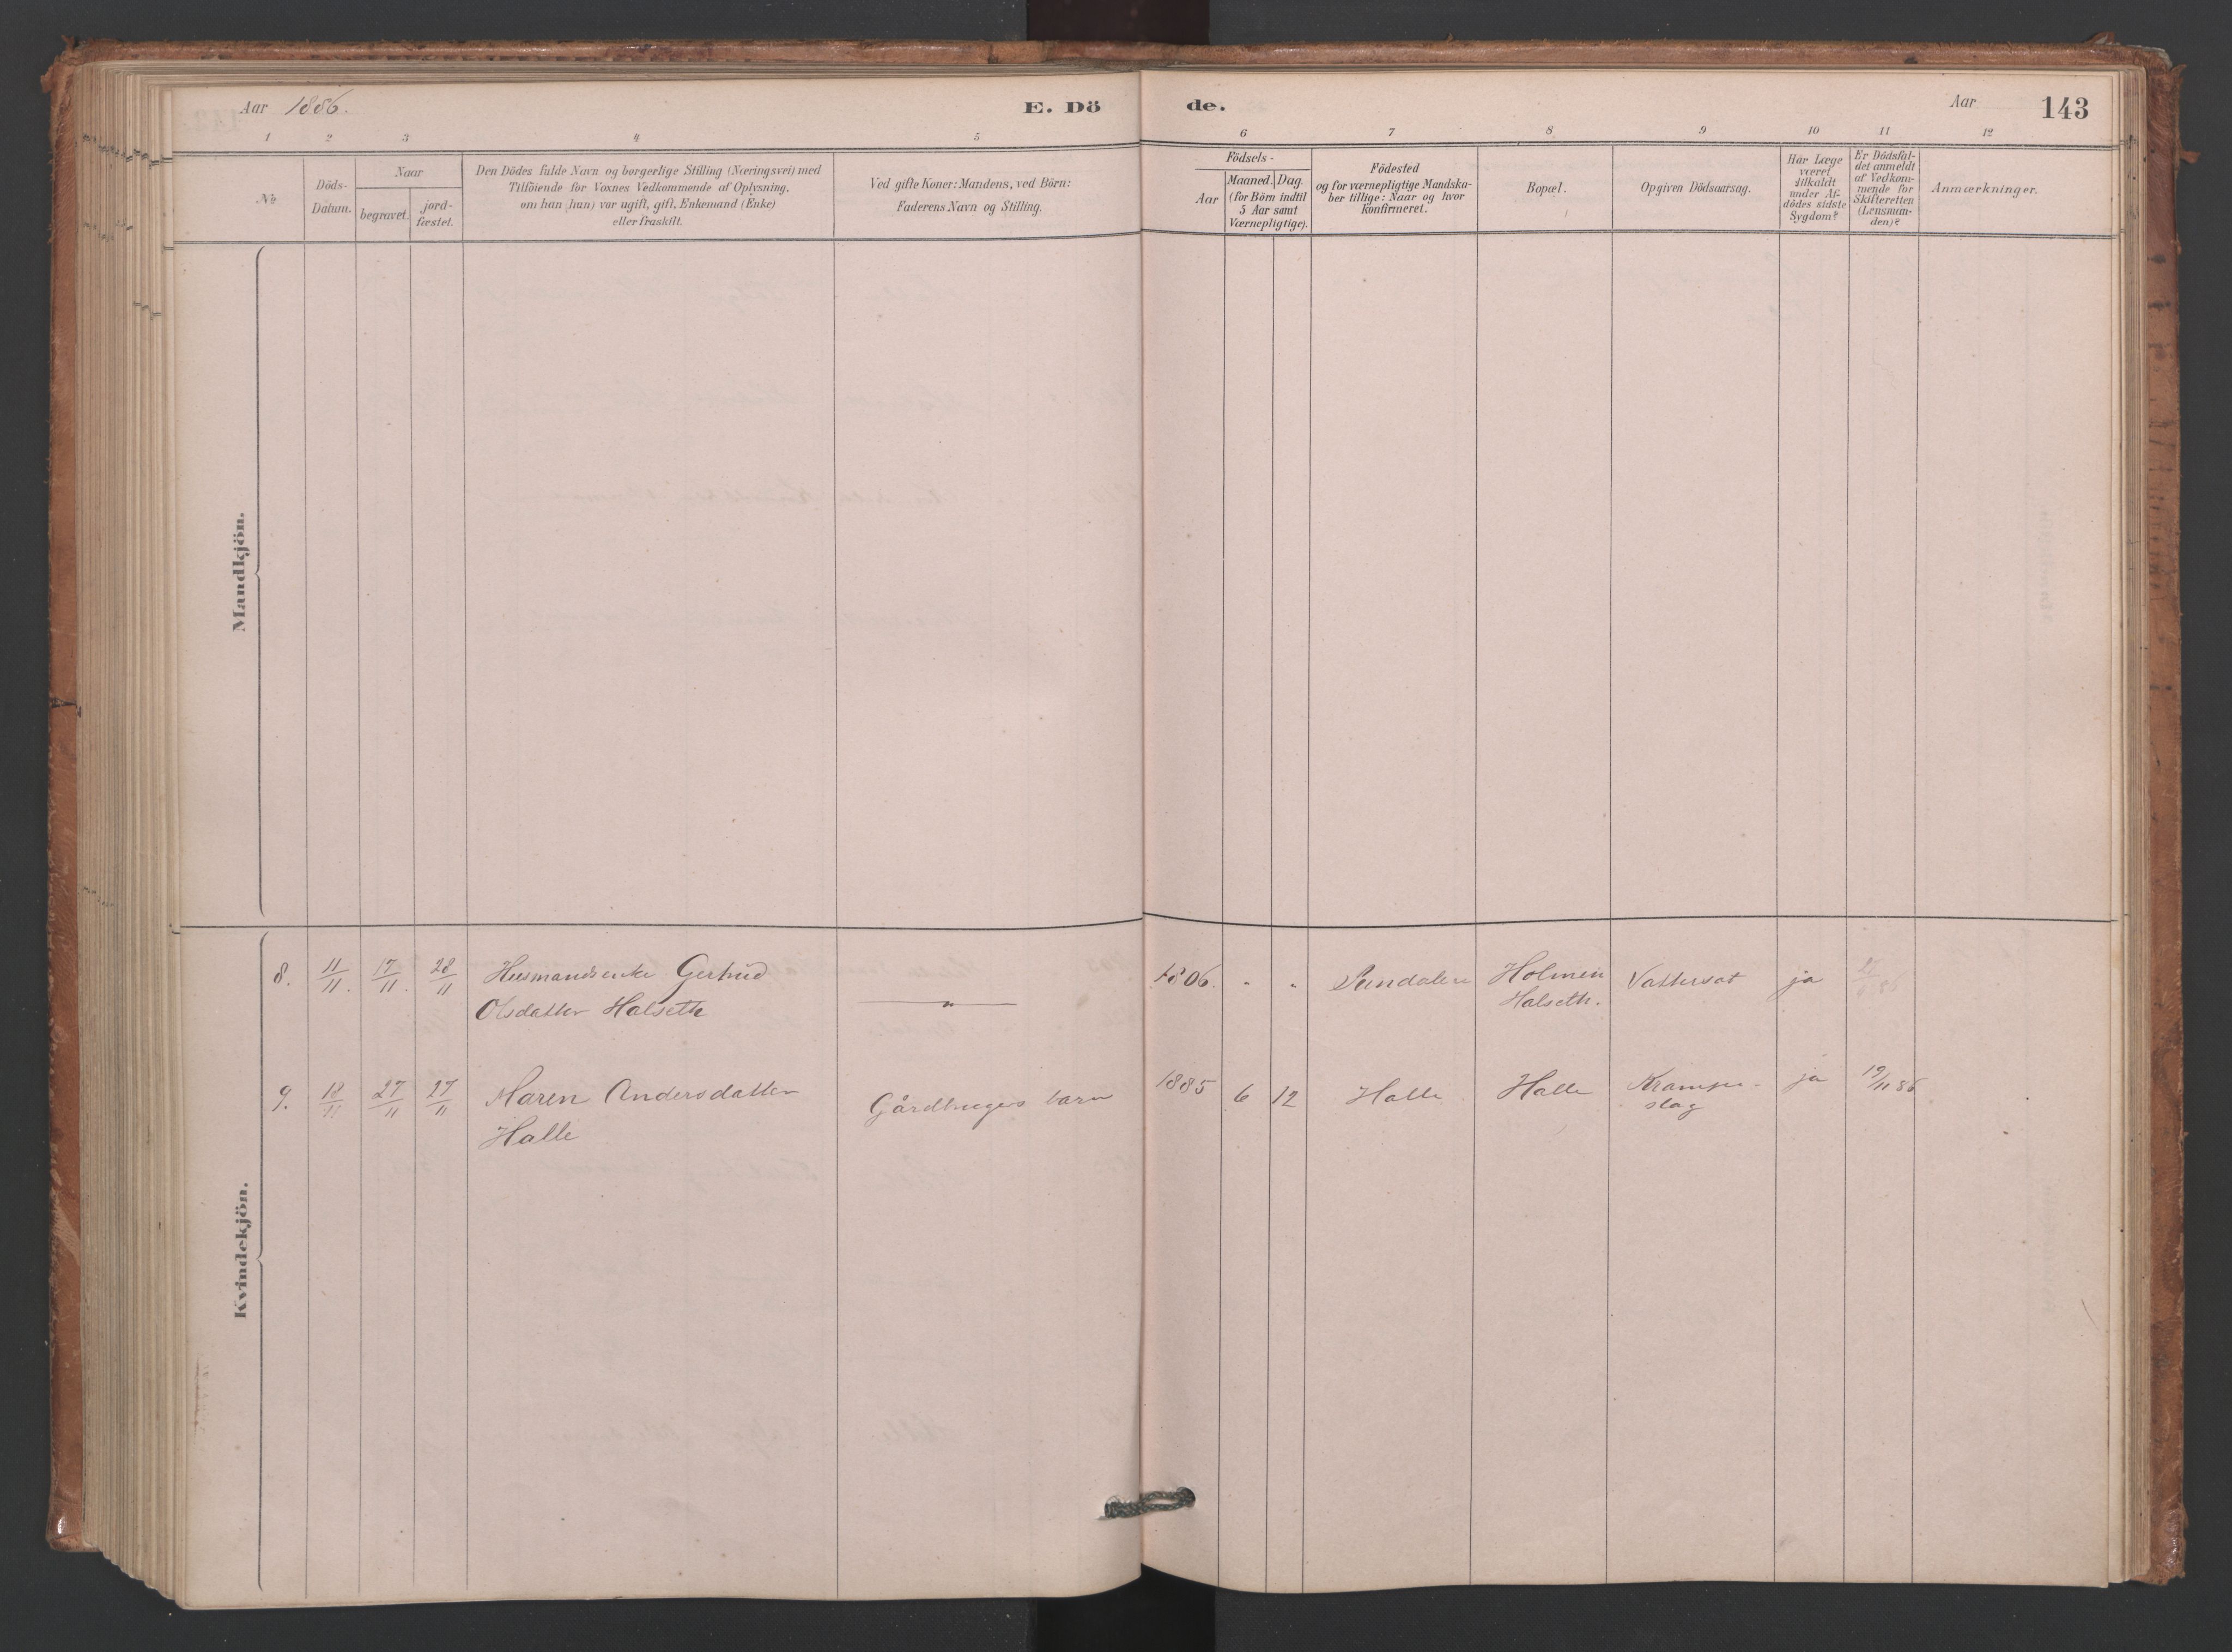 Aar 1886. E. Dö de. Aar 143
1 2 3 4 5 6 7 8 9 10 11 12
No
Döds-
Datum.
Naar
begravet.
jord-
fæstet.
Den Dödes fulde Navn og borgerlige Stilling (Næringsvei) med
Tilföiende for Voxnes Vedkommende af Oplysning,
om han (hun) var ugift, gift, Enkemand (Enke)
eller fraskilt.
Ved gifte Koner: Mandens, ved Börn:
Faderens Navn og Stilling.
Födsels-
Aar
Maaned. Dag.
(for Börn indtil
5 Aar samt
Værnepligtige).
Födested
og for værnepligtige Mandska-
ber tillige: Naar og hvor
konfirmeret.
Bopæl.
Opgiven Dödsaarsag.
Har Læge
været
tilkaldt
under Af-
dödes sidste
Sygdom?
Er Dödsfal-
det anmeldt
af Vedkom-
mende for
Skifteretten
(Lensman-
den)?
Anmærkninger.
Mandkjön.
Kvindekjön.
8. 11/11. 17/11. 28/11 Husmandsenke Gertrud 1806. " " Sundalen Holmen Vattersot ja
Olsdatter Halseth — " — Halseth.
9. 18/11 27/11 27/11 Maren Andersdatter Gårdbrugers barn 1885 6 12 Halle Halle Krampe- ja 19/11 86
Halle slag